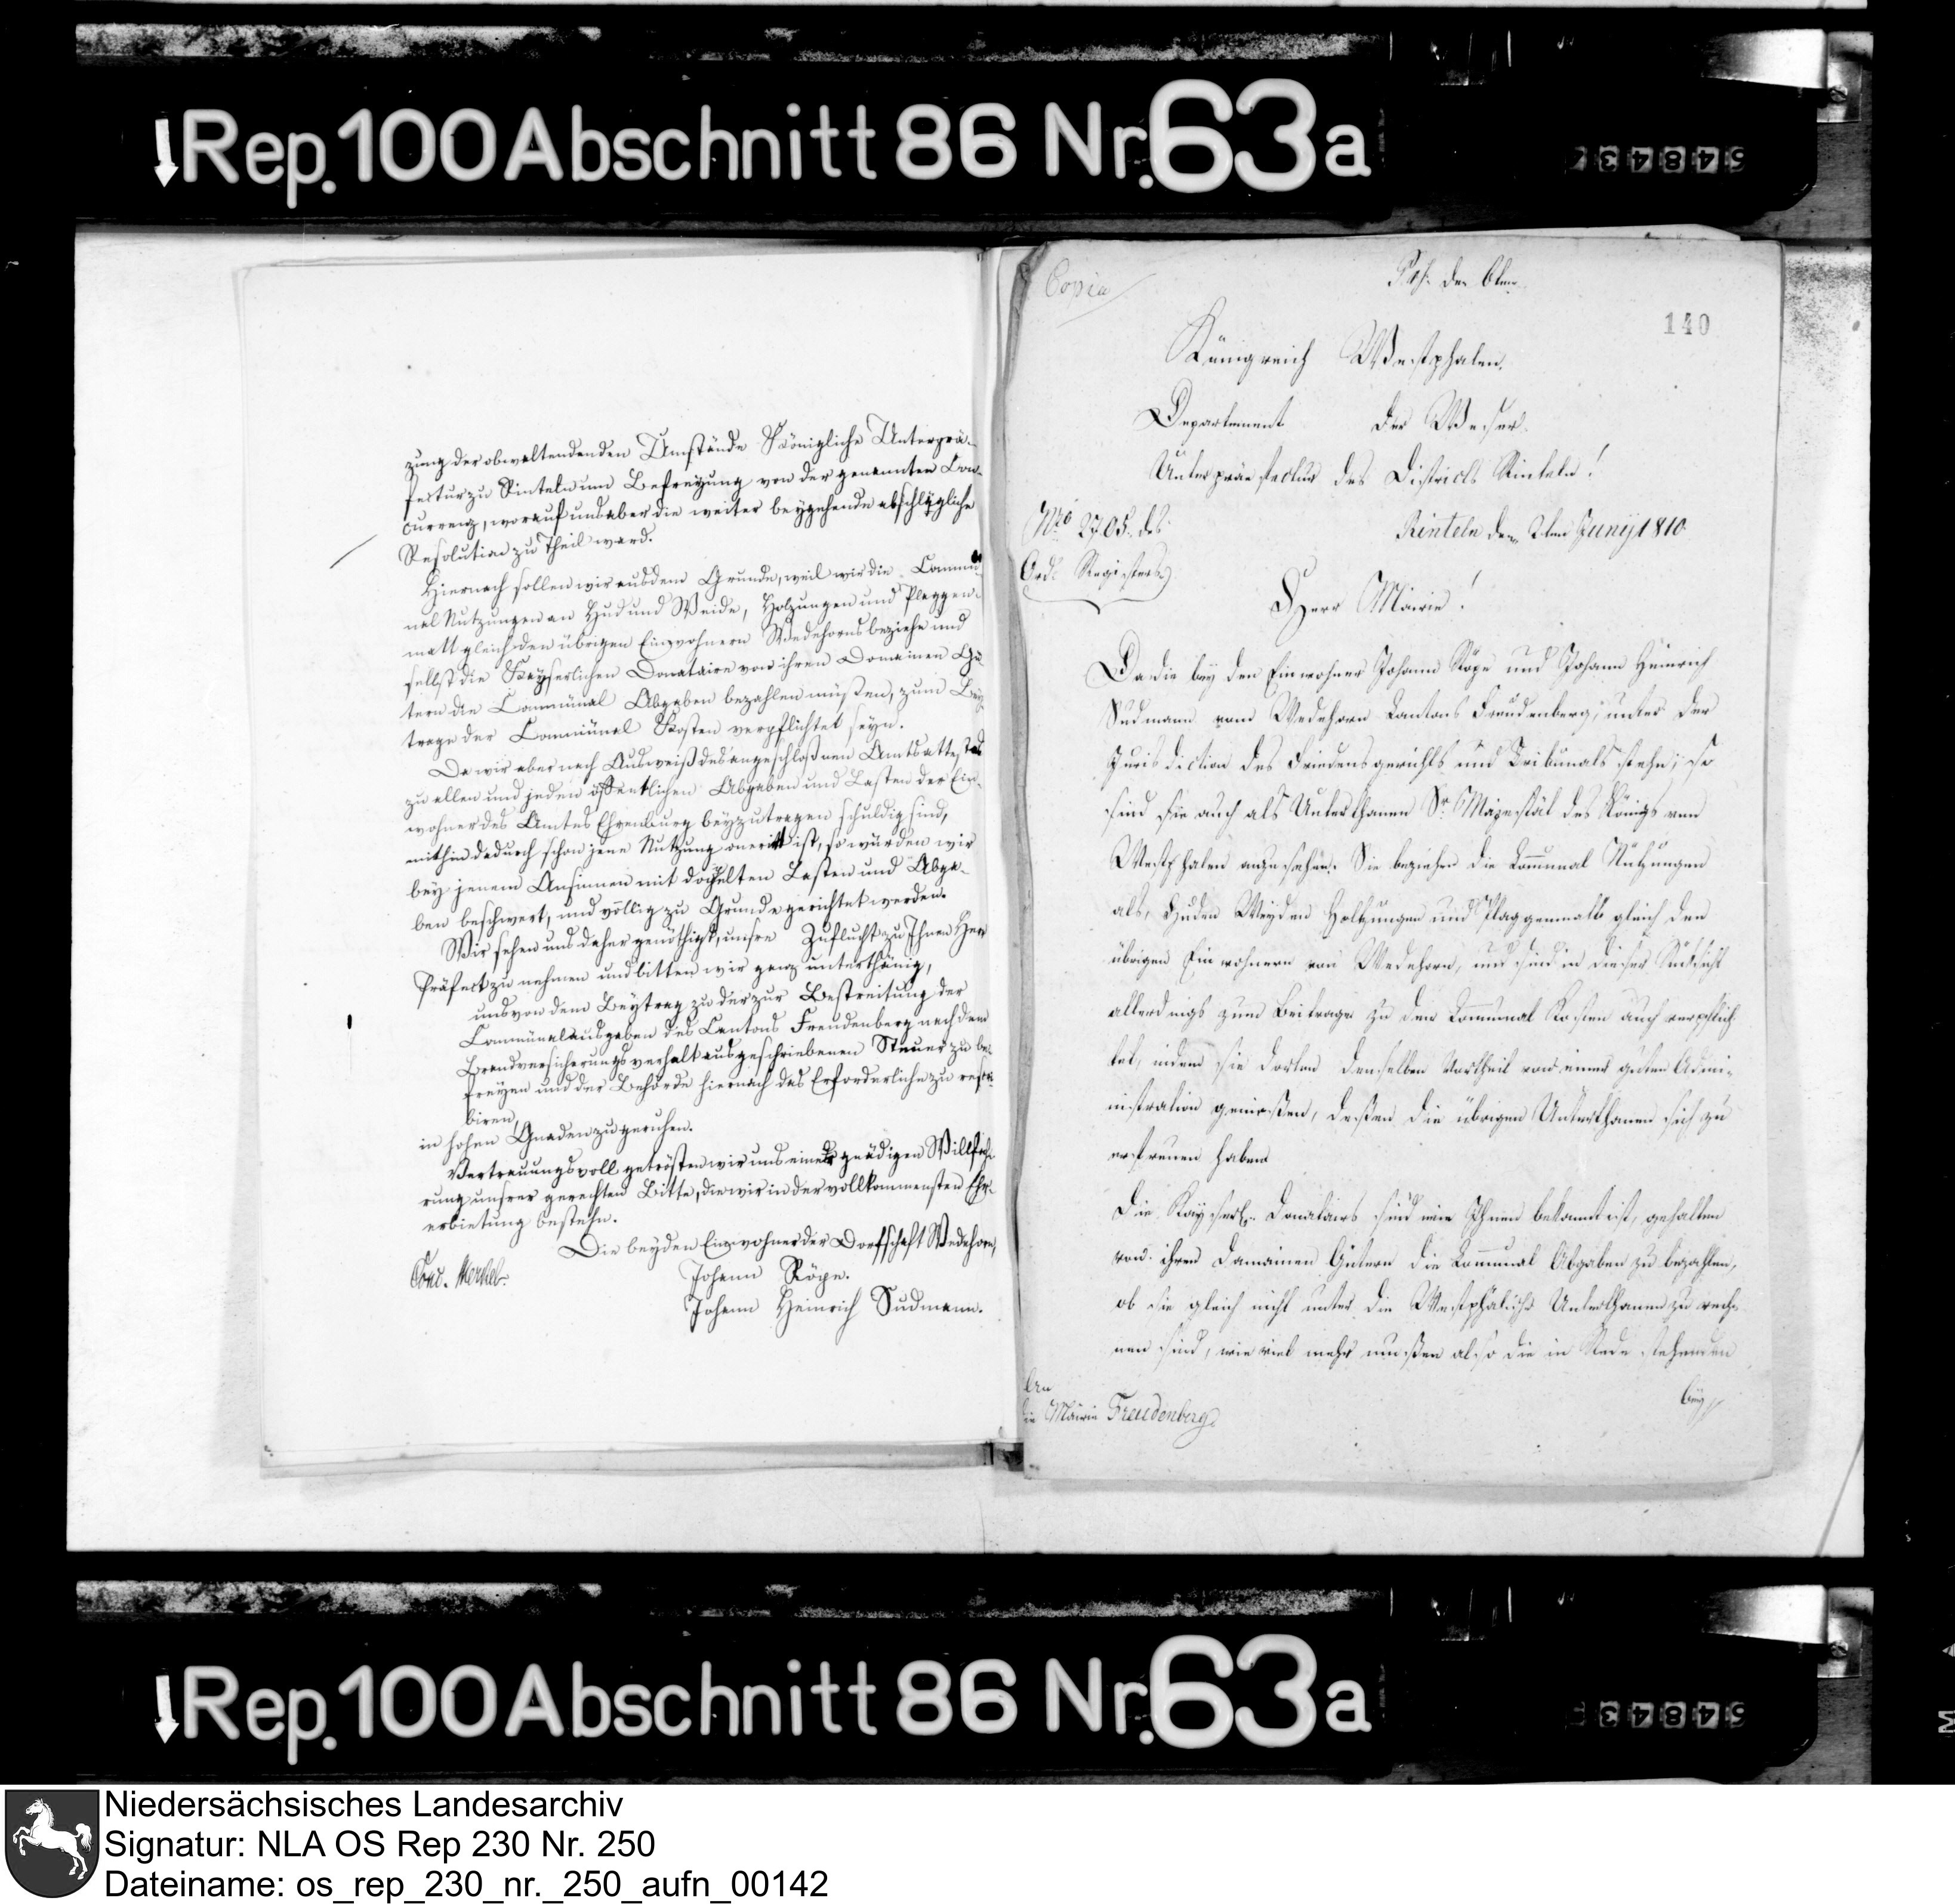 Rep. 100 Abschnitt 86 Nr. 63a
54843
zung der obwaltendenden Umstände Königliche Unterprä-
fectur zu Rinteln um Befreyung von der genannten Con-
currenz, worauf uns aber die weiter beygehende abschlägliche
Resolution zu Theil ward.
Hiernach sollen wir aus dem Grunde, weil wir die Commu-
nal Nutzungen an Hud und Weide, Holzungen und Plaggen-
matt gleich den übrigen Einwohnern Wedehorns beziehn und
selbst die Kayserlichen Donataire von ihren Domainen Gü-
tern die Communal Abgaben bezahlen müßen, zum Bey-
trage der Communal Kosten verpflichtet seyn.
Da wir aber nach Ausweiß des angeschloßnen Amtsattestes
zu allen und jeden öffentlichen Abgaben und Lasten der Ein-
wohner des Amtes Ehrenburg beyzutragen schuldig sind,
mithin dadurch schon jene Nutzung onerirt ist, so würden wir
bey jenem Ansinnen mit doppelten Lasten und Abga-
ben beschwert, und völlig zu Grunde gerichtet werden.
Wir sehen uns daher genöthigt, unsre Zuflucht zu Ihnen Herr
Präfect zu nehmen und bitten wir ganz unterthänig,
uns von dem Beytrag zu der zur Bestreitung der
Communalausgaben des Cantons Freudenberg nach dem
Brandversicherungsverhalt ausgeschriebenen Steuer zu be-
freyen und der Behörde hiernach das Erforderliche zu rescri-
biren,
in hohen Gnaden zu geruhen.
Vertrauungsvoll getrösten wir uns einer gnädigen Willfah-
rung unsrer gerechten Bitte, die wir in der vollkommensten Ehr-
erbietung bestehn.
Die beyden Einwohner der Dorfschaft Wedehorn,
Conc. Merkel.
Johann Röpe.
Johann Heinrich Sudmann.
Copia
140
Königreich Westphalen.
Departement der Weser.
Unterpräefectur des Districts Rinteln!
Nro 2705. des
Ord. Registers
Rinteln den 2ten Junij 1810
Herr Mairie!
Da die bey den Einwohner Johann Röpe und Johann Heinrich
Sudmann vom Wedehorn Cantons Freudenberg, unter der
Jurisdiction des Friedensgerichts und Tribunals stehn; so
sind sie auch als Unterthanen Sr. Majestät des Königs von
Westphalen anzusehen. Sie beziehen die Communal Nutzungen
als, Huden Weyden Holtzungen und Plaggenmatt gleich den
übrigen Einwohnern von Wedehorn, und sind in dieser Rücksicht
allerdings zum Beitrage zu den Communal Kosten auch verpflich-
tet, indem sie dorten denselben Vortheil von einer guten Admi-
nistration genießen, deßen die übrigen Unterthanen sich zu
erfreuen haben
Die Kayserl. Donatairs sind wie Ihnen bekannt ist, gehalten
von ihren Domainen Gütern die Communal Abgaben zu bezahlen,
ob sie gleich nicht unter die Westphälische Unterthanen zu rech-
nen sind, wie viel mehr mußen also die in Rede stehenden
An
die Mairie Freudenberg.
bey
Rep. 100 Abschnitt 86 Nr. 63a
54843
Niedersächsisches Landesarchiv
Signatur: NLA OS Rep 230 Nr. 250
Dateiname: os_rep_230_nr._250_aufn_00142